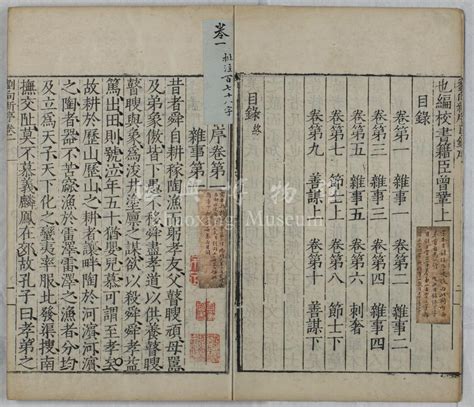 也編校書籍臣曾鞏上
目錄
卷第一 雜事一 卷第二 雜事二
卷第三 雜事三 卷第四 雜事四
卷第五 雜事五 卷第六 刺奢
卷第七 節士上 卷第八 節士下
卷第九 善謀上 卷第十 善謀下
目錄終
卷一
批注百七十八字
序卷第一
雜事第一
昔者舜自耕稼陶漁而躬孝友父瞽瞍頑母嚚
及弟象傲皆下愚不移舜盡孝道以供養瞽瞍
瞽瞍與象為浚井塗廩之謀欲以殺舜舜孝益
篤出田則號泣年五十猶嬰兒慕可謂至孝矣
故耕於歷山歷山之耕者讓畔陶於河濱河濱
之陶者器不苦窳漁於雷澤雷澤之漁者分均
及立為天子天下化之蠻夷率服北發渠搜南
撫交阯莫不慕義麟鳳在郊故孔子曰孝弟之
劉向新序卷一
博物館
Museum